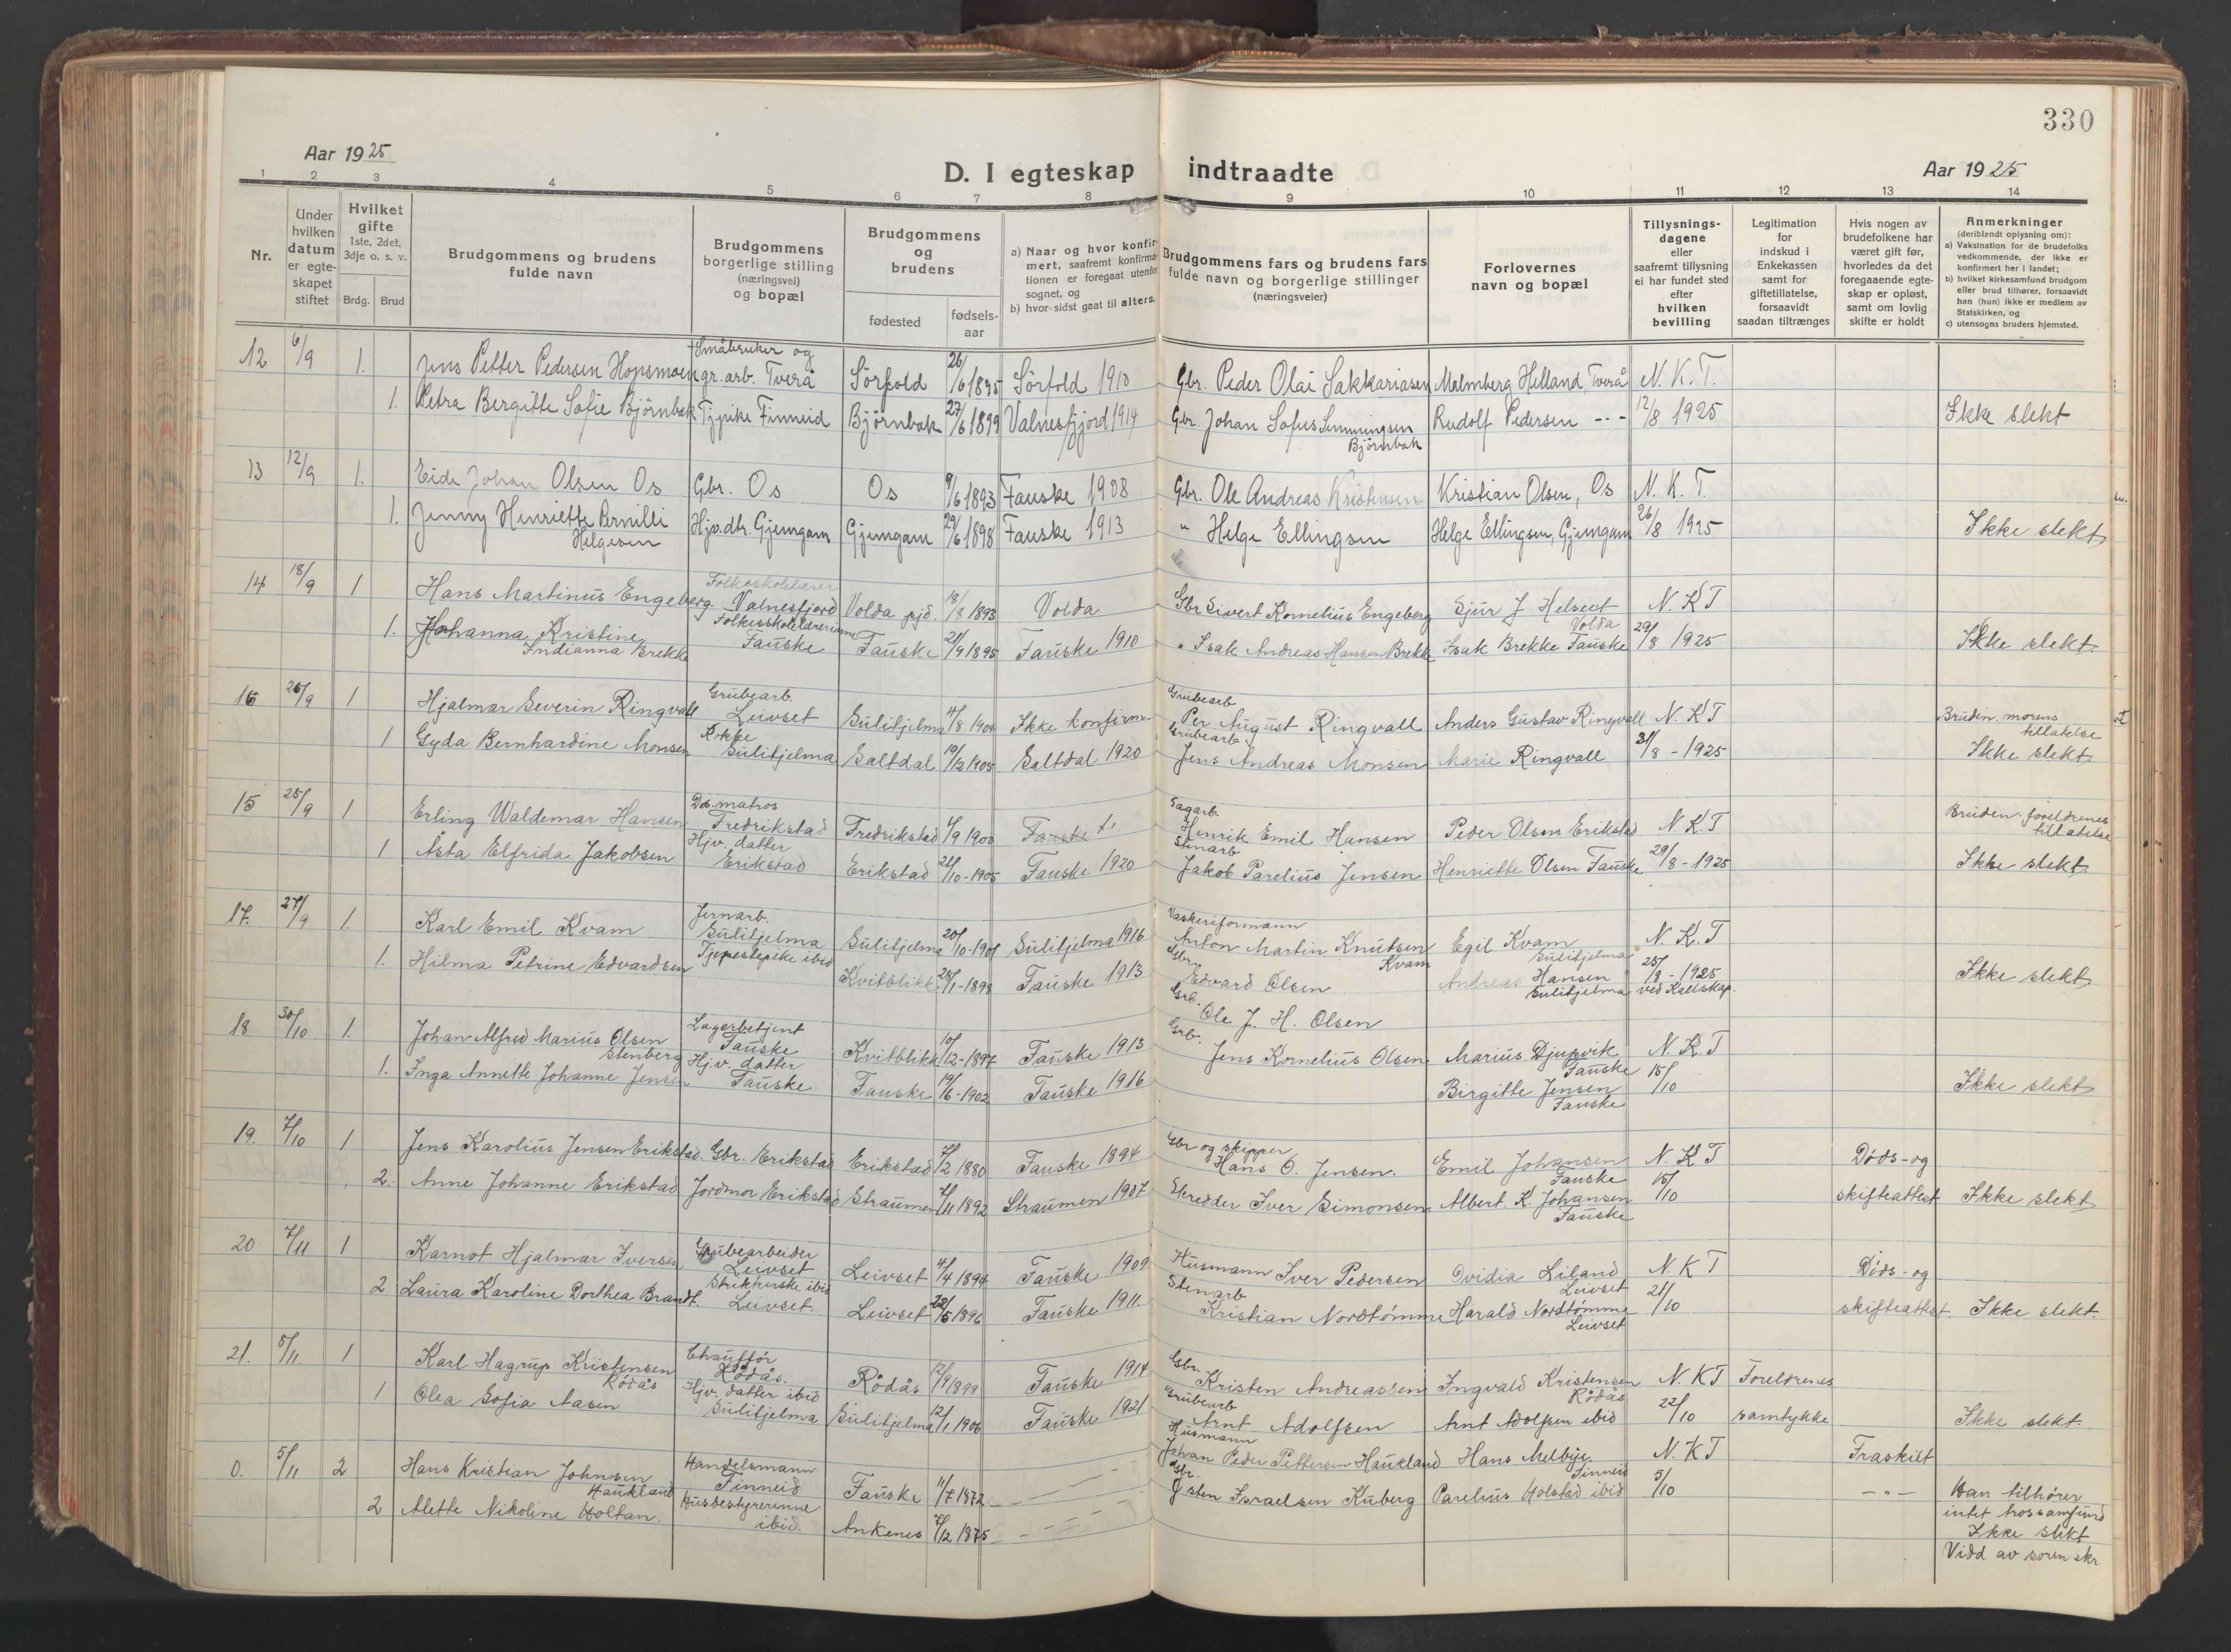 330
Aar 1925
D. I egteskap indtraadte
Aar 1925
1 2 3 4 5 6 7 8 9 10 11 12 13 14
Nr.
Under hvilken datum er egteskapet stiftet
Hvilket gifte 1ste, 2det, 3dje o. s. v.
Brdg. Brud
Brudgommens og brudens fulde navn
Brudgommens borgerlige stilling (næringsvei) og bopæl
Brudgommens og brudens
fødested
fødselsaar
a) Naar og hvor konfirmert, saafremt konfirmationen er foregaat utenfor sognet, og
b) hvor sidst gaat til alters.
Brudgommens fars og brudens fars fulde navn og borgerlige stillinger (næringsveier)
Forlovernes navn og bopæl
Tillysningsdagene eller saafremt tillysning ei har fundet sted efter hvilken bevilling
Legitimation for indskud i Enkekassen samt for giftetillatelse, forsaavidt saadan tiltrænges
Hvis nogen av brudefolkene har været gift før, hvorledes da det foregaaende egteskap er opløst, samt om lovlig skifte er holdt
Anmerkninger (deriblandt oplysning om):
a) Vaksination for de brudefolks vedkommende, der ikke er konfirmert her i landet;
b) hvilket kirkesamfund brudgom eller brud tilhører, forsaavidt han (hun) ikke er medlem av Statskirken, og
c) utensogns bruders hjemsted.
12 6/9 1. Jens Petter Pedersen Hopsmoen Småbruker og gr. arb. Tverå Sörfold 26/6 1895 Sörfold 1910 Gbr. Peder Olai Sakkariasen Malmberg Helland, Tverå N. K. T.
1. Petra Bergitte Sofie Björnbak Tjpike Finneid Björnbak 27/6 1899 Valnesfjord 1914 Gbr. Johan Sofus Simmingsen Björnbak Rudolf Pedersen - - - 12/8 1925 Ikke slekt
13 12/9 1. Eide Johan Olsen Os Gbr. Os Os 9/6 1893 Fauske 1908 Gbr. Ole Andreas Kristensen Kristian Olsen, Os N. K. T.
1. Jenny Henriette Pernilli Helgesen Hjv. dtr. Gjemgam Gjemgam 29/6 1898 Fauske 1913 " Helge Ellingsen Helge Ellingsen, Gjemgam 26/8 1925 Ikke slekt
14 18/9 1 Hans Martinus Engeberg Folkeskolelærer Valnesfjord Volda pjd. 18/8 1893 Volda Gbr Sivert Kornelius Engeberg Sjur J Helseut Volda N. K T
1. Johanna Kristine Indianna Brekke Folkeskolelærerinne Fauske Fauske 21/9 1895 Fauske 1910 " Isak Andreas Hansen Brekk Isak Brekke Fauske 29/8 1925 Ikke slekt.
16 26/9 1 Hjalmar Severin Ringvall Grubearb. Leivset Sulitjelma 4/8 1904 Ikke konfirm Grubearb Per August Ringvall Anders Gustav Ringvall N. K T Bruden morens tillatelse
1 Gyda Bernhardine Monsen Kokke Sulitjelma Saltdal 19/12 1905 Saltdal 1920 Grubearb. Jens Andreas Monsen Marie Ringvall 31/8 - 1925 Ikke slekt
15 25/9 1 Erling Waldemar Hansen matros Fredrikstad Fredrikstad 4/9 1900 Fauske Sagarb. Henrik Emil Hansen Peder Olsen Erikstad N. K. T Bruden foreldrenes tillatelse
1 Asta Elfrida Jakobsen Hjv. datter Erikstad Erikstad 24/10 - 1905 Fauske 1920 Stenarb Jakob Parelius Jensen Henriette Olsen Fauske 29/8 - 1925 Ikke slekt.
17. 27/9 1. Karl Emil Kvam Jernarb. Sulitjelma Sulitjelma 20/10 - 1901 Sulitjelma 1916 Vaskeriformann Anton Martin Knutsen Kvam Egil Kvam Sulitjelma N. K. T
1. Hilma Petrine Edvardsen Tjenestepike ibid Kvitblikk 24/1 - 1898 Fauske 1913 Gbr. Edvard Olsen Andreas Hansen Sulitjelma 25/8 - 1925 ved Kallskap. Ikke slekt
18 30/10 1. Johan Alfred Marius Olsen Stenberg Lagerbetjent Fauske Kvitblikk 10/12 - 1897 Fauske 1913 Grb. Ole J. H. Olsen Marius Djupvik Fauske N. K. T
1. Inga Annette Johanne Jensen Hj. v. datter Fauske Fauske 19/6 - 1902 Fauske 1916 Grb. Jens Kornelius Olsen Birgitte Jensen Fauske 15/10 Ikke slekt
19. 7/10 1 Jens Karolius Jensen Erikstad. Gbr. Erikstad Erikstad 7/2 1880 Fauske 1894 Gbr og skipper Hans O. Jensen. Emil Johansen Fauske N. K T Döds- og
2. Anne Johanne Erikstad Jordmor Erikstad Straumen 7/11 1892 Straumen 1907 Skredder Iver Simonsen Albert K. Johansen Fauske 15/10 skifteattest Ikke slekt
20 7/11 1 Karnot Hjalmar Iversen Grubearbeider Leivset Leivset 4/4 1894 Fauske 1909 Husmann Iver Pedersen Ovidia Liland Leivset N. K T Döds- og
2 Laura Karoline Dorthea Brandt. Strikkerske ibid Leivset. Leivset 22/5 1896 Fauske 1911 Stenarb Kristian Nordtömme Harald Nordtömme Leivset 21/10 skifteattest. Ikke slekt.
21. 5/11. 1 Karl Hagrup Kristensen Rödås Chaufför Rödås. Rödås 12/9 1899 Fauske 1914 Gbr. Kristen Andreassen Ingvald Kristensen Rödås N. K T Foreldrenes
1 Olea Sofia Aasen Hjv. datter ibid Sulitjelma Sulitjelma 12/1 1906 Fauske 1921 Grubearb Arnt Adolfsen Arnt Adolfsen ibid 22/10 samtykke Ikke slekt.
0. 5/11 2 Hans Kristian Johnsen Haukland Handelsmann Finneid Fauske 11/7 1872 - - - Husmann Johan Peder Pettersen Haukland Hans Melbye Finneid N. K T Fraskilt
2 Alette Nikoline Holtan. Husbestyrerinne ibid. Ankenes 7/12 1875 - - - Gbr. Östen Israelsen Kuberg Parelius Holstad ibid 5/10 - " - Han tilhører intet trossamfund
Ikke slekt
Vidd av soren skr